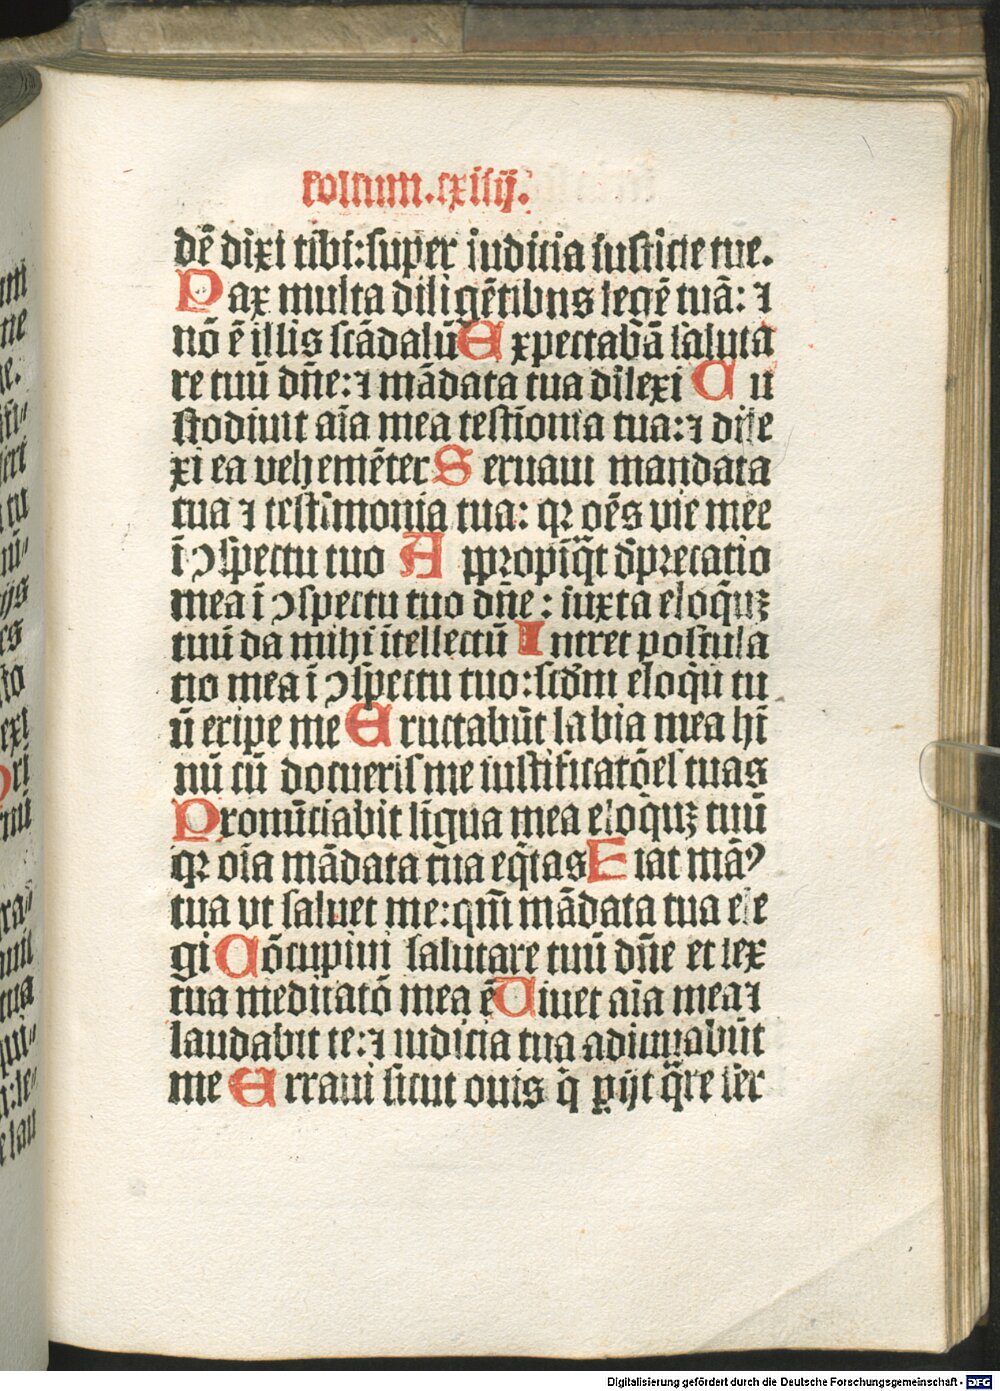 Foliaum.cxiiij.
dē dixi tibi:super iudicia iusticie tue.
Pax multa diligētibus legē tuā: ⁊
nō ē illis scādalū Expectabā saluta
re tuū dn̄e:⁊ mādata tua dilexi Cu
stodiuit aīa mea testīonia tua:⁊ dile
xi ea vehemēter Seruaui mandata
tua ⁊ testimonia tua: qꝛ oēs vie mee
ī ↄspectu tuo Appropīq̄t dēprecatio
mea ī ↄspectu tuo dn̄e: iuxta eloq̄uꝫ
tuū da mihi ītellectū Intret postula
tio mea ī ↄspectu tuo:scd̄m eloq̄ū tu
ū eripe me Eructabūt labia mea hī
nū cū docueris me iustificatōes tuas
Pronūciabit līgua mea eloq̄uꝫ tuū
qꝛ oīa mādata tua eq̄tas Fiat manꝰ
tua vt saluet me:qm̄ mādata tua ele
gi Cōcupiui salutare tuū dn̄e et lex
tua meditatō mea ē Uiuet aīa mea ⁊
laudabit te:⁊ iudicia tua adiuuabūt
me Erraui sicut ouis q̄ ꝑijt q̄re ser
Digitalisierung gefördert durch die Deutsche Forschungsgemeinschaft - DFG